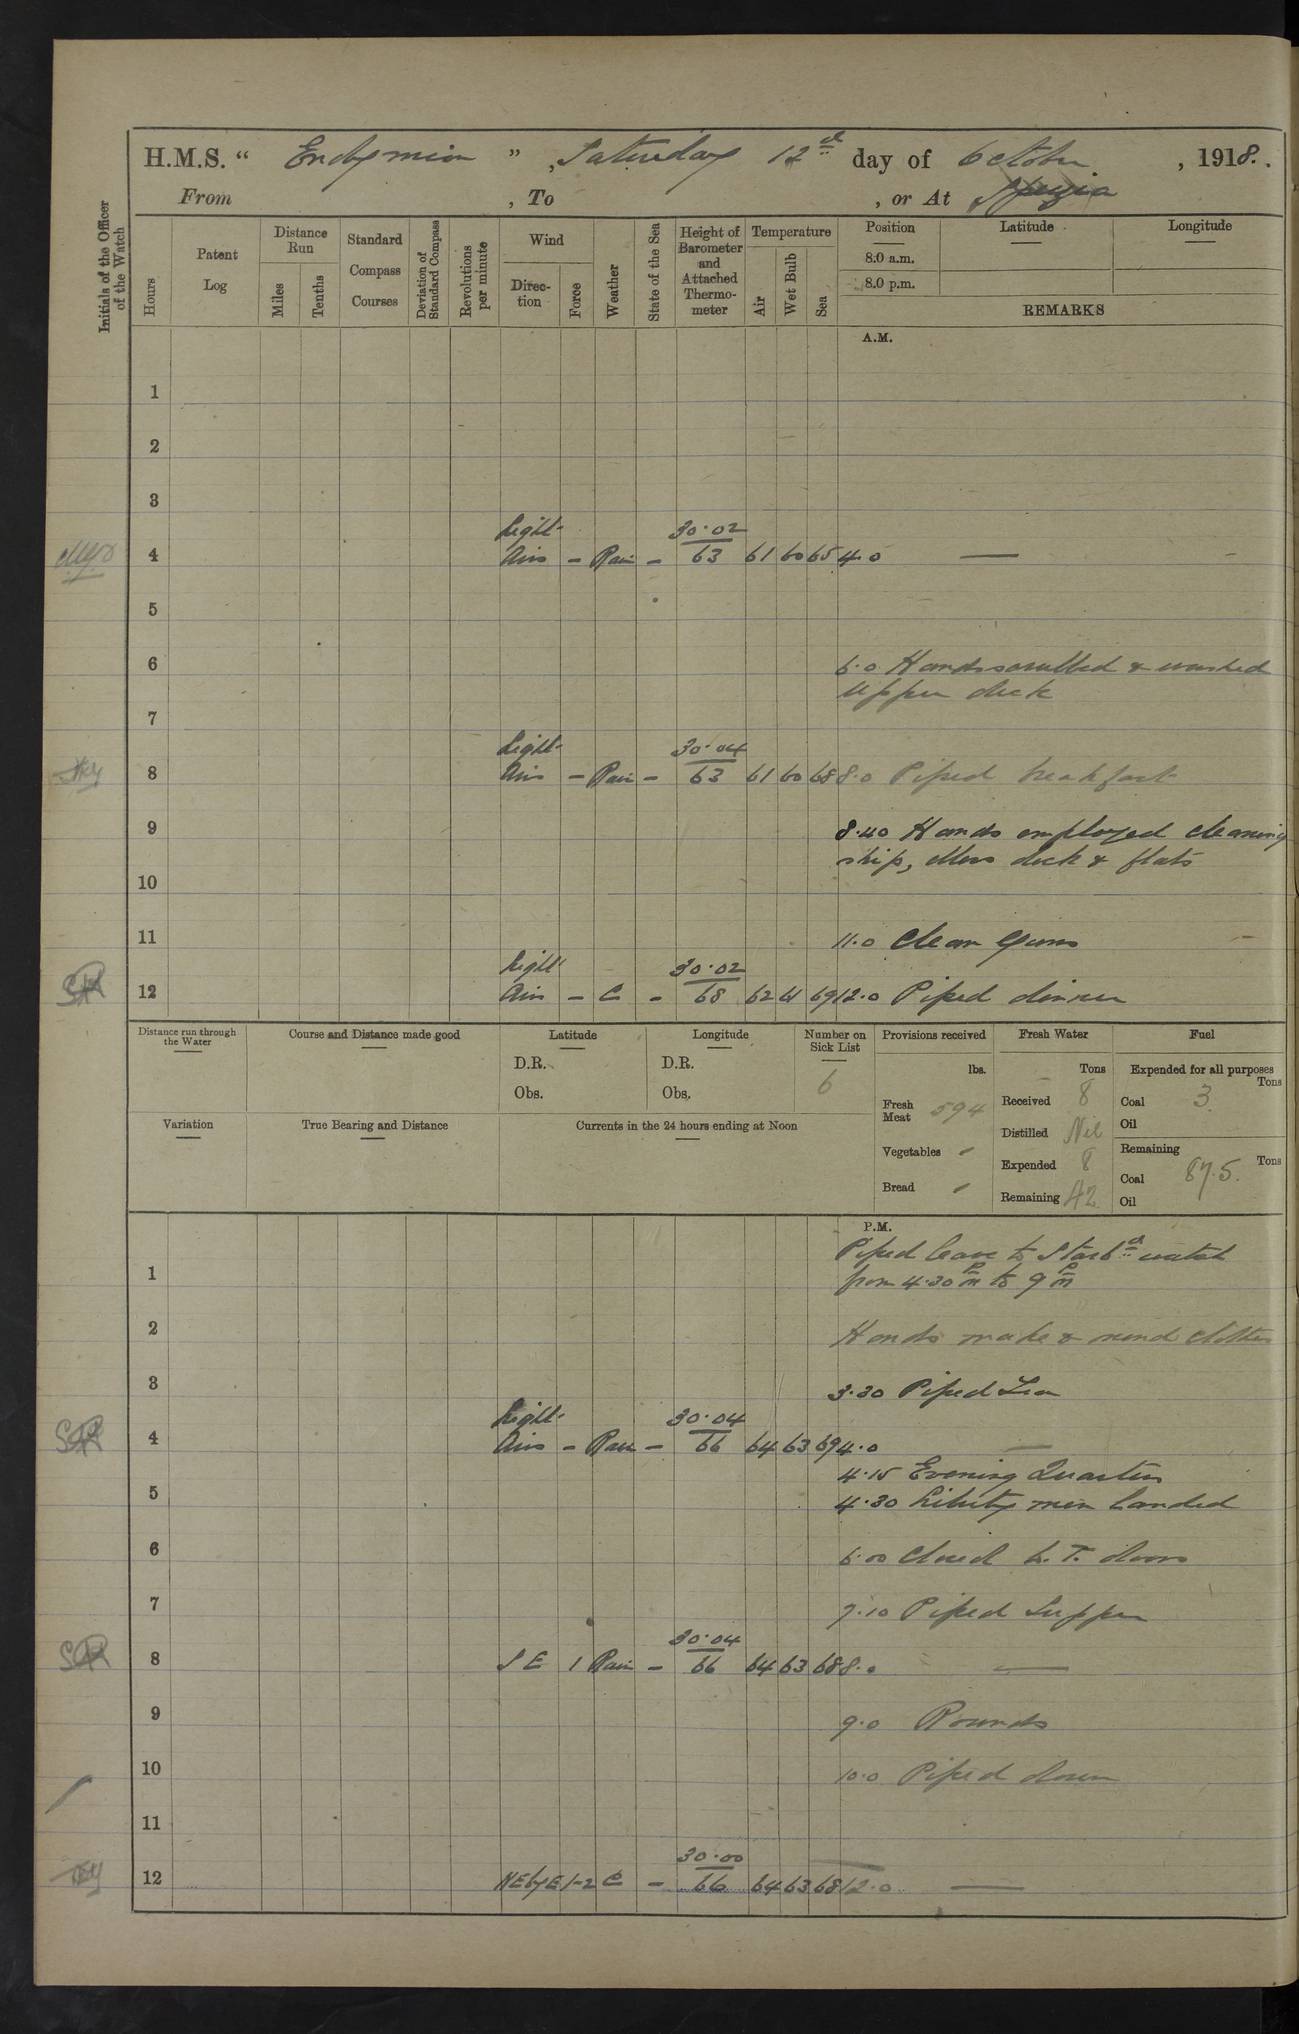 H.M.S. “ Endymion ” , Saturday 12th day of October , 1918.
From , To , or At Spezia
Initials of the Officer of the Watch
Hours
Patent Log
Distance Run
Miles
Tenths
Standard Compass Courses
Deviation of Standard Compass
Revolutions per minute
Wind
Direction
Force
Weather
State of the Sea
Height of Barometer and Attached Thermometer
Temperature
Air
Wet Bulb
Sea
Position Latitude Longitude
8.0 a.m.
8.0 p.m.
REMARKS
A.M.
1
2
3
Light 30.02
4 Airs - Rain - 63 61 60 65 4.0 —
5
6 6.0 Hands scrubbed & washed
upper deck
7
Light 30.04
8 Airs - Rain - 63 61 60 68 8.0 Piped breakfast
9 8.40 Hands employed cleaning
ship, Mess deck & flats
10
11 11.0 Clean Guns
Light 30.02
12 Airs - C - 68 62 61 69 12.0 Piped dinner
Distance run through the Water
Course and Distance made good
Latitude
D.R.
Obs.
Longitude
D.R.
Obs.
Number on Sick List
6
Provisions received
lbs.
Fresh Meat 594
Vegetables
Bread
Fresh Water
Tons
Received 8
Distilled Nil
Expended 8
Remaining 42
Fuel
Expended for all purposes
Tons
Coal 3
Oil
Remaining
Tons
Coal 87.5
Oil
Variation
True Bearing and Distance
Currents in the 24 hours ending at Noon
P.M.
Piped leave to Starbd watch
1 from 4.30 pm to 9 pm
2 Hands make & mend clothes
3 3.30 Piped Tea
Light 30.04
4 Airs - Rain - 66 64 63 69 4.0 —
4.15 Evening Quarters
5 4.30 Liberty men landed
6 6.00 Closed W.T. doors
7 7.10 Piped Supper
30.04
8 S E 1 Rain - 66 64 63 68 8.0 —
9 9.0 Rounds
10 10.0 Piped down
11
30.00
12 NEbyE 1-2 C - 66 64 63 68 12.0 —